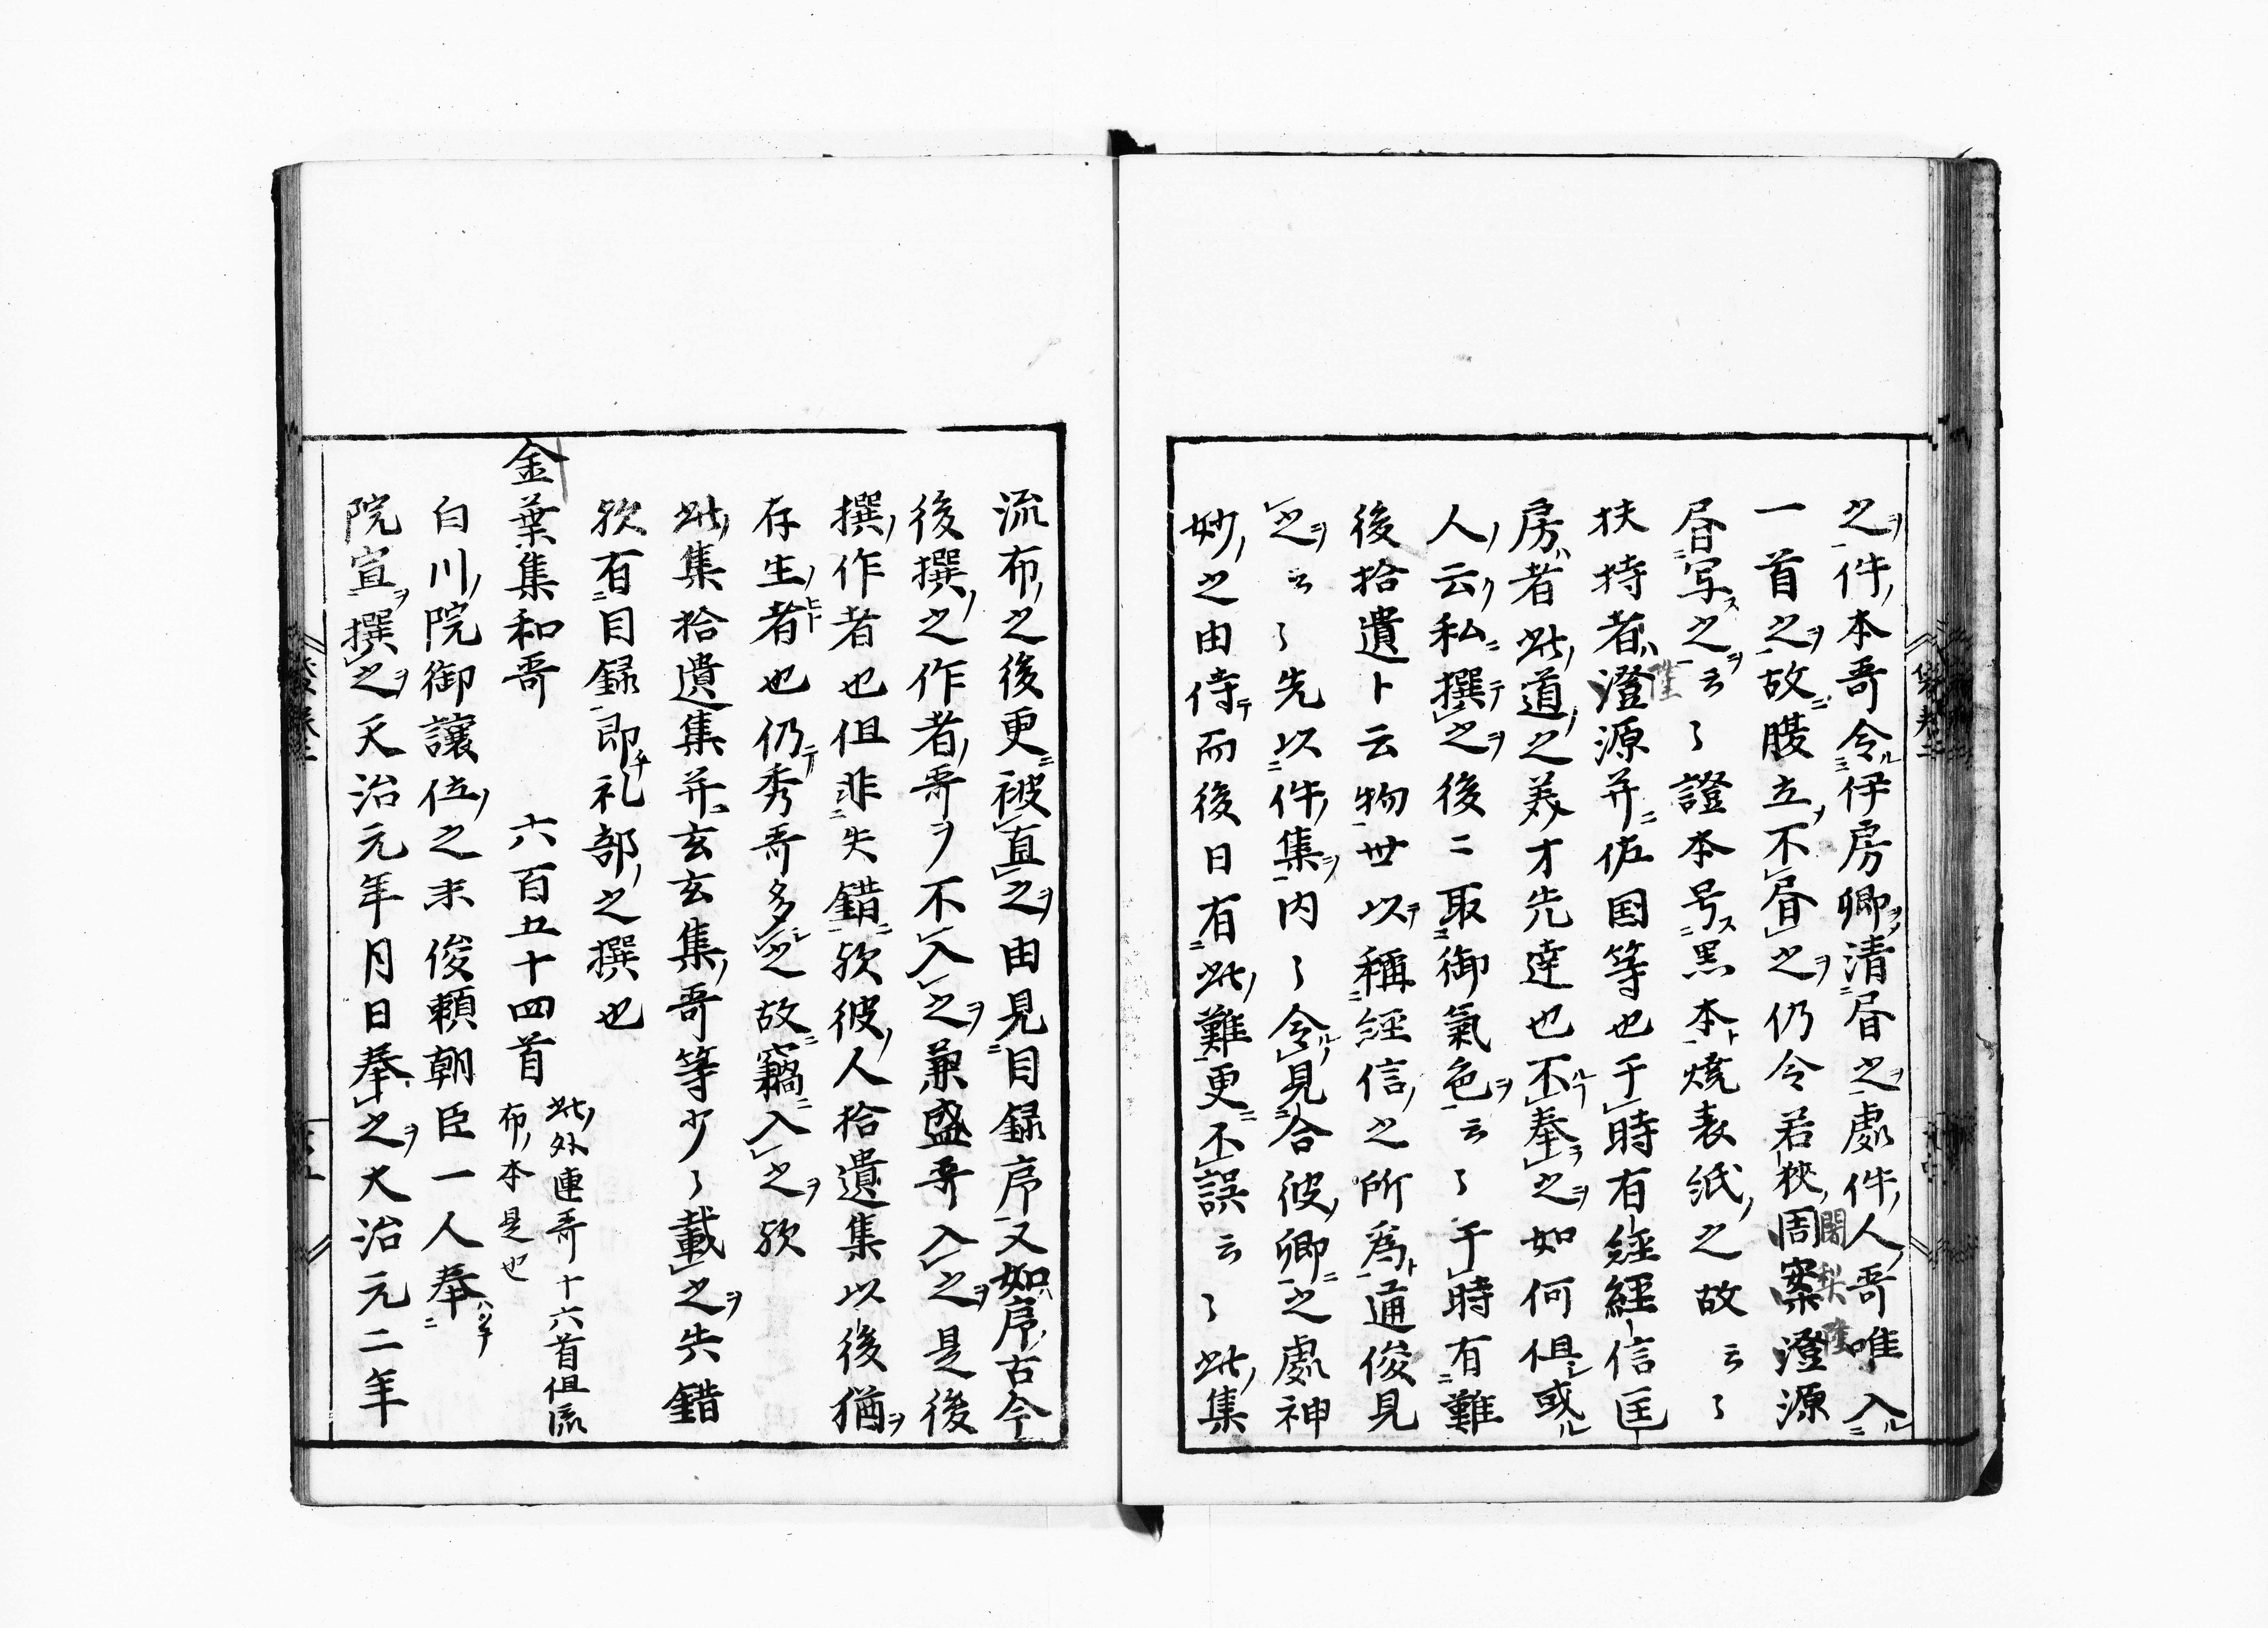 之件本哥令伊房卿清昼之處件人哥唯入
一首之故腹立不昼之仍令若狭周案澄源
昼写之云々證本号黒本焼表紙之故云々
扶持者澄源并佐国等也于時有經經信匡
房者此道之英才先達也不奉之如何但或
人云私撰之後ニ取御氣色云々于時有難
後拾遺ト云物世以稱經信之所為通俊見
之云々先以件集内々令見合彼卿之處神
妙之由侍而後日有此難更不誤云々此集
流布之後更被直之由見目録序又如序古今
後撰之作者哥ヲ不入之兼盛哥入之是後
撰作者也但非失錯歟彼人拾遺集以後猶
存生者也仍秀哥多之故竊入之歟
此集拾遺集并玄玄集哥等少々載之失錯
歟有目録即礼部之撰也
金葉集和哥　六百五十四首　此外連哥十六首但流
布本是也
白川院御讓位之末俊頼朝臣一人奉
院宣撰之天治元年月日奉之大治元二年